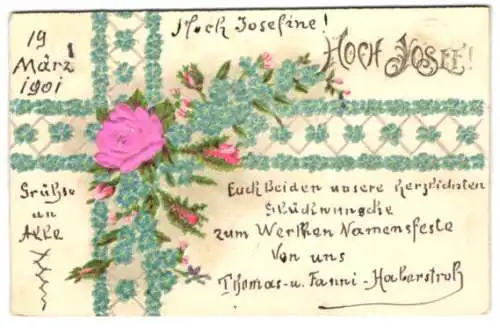 19
März
1901
Hoch Josefine!
HOCH JOSEF!
Grüsse
an
Alle
Euch Beiden unsere herzlichsten
Glückwünsche
zum Werthen Namensfeste
Von uns
Thomas-u. Fanni-Haberstroh